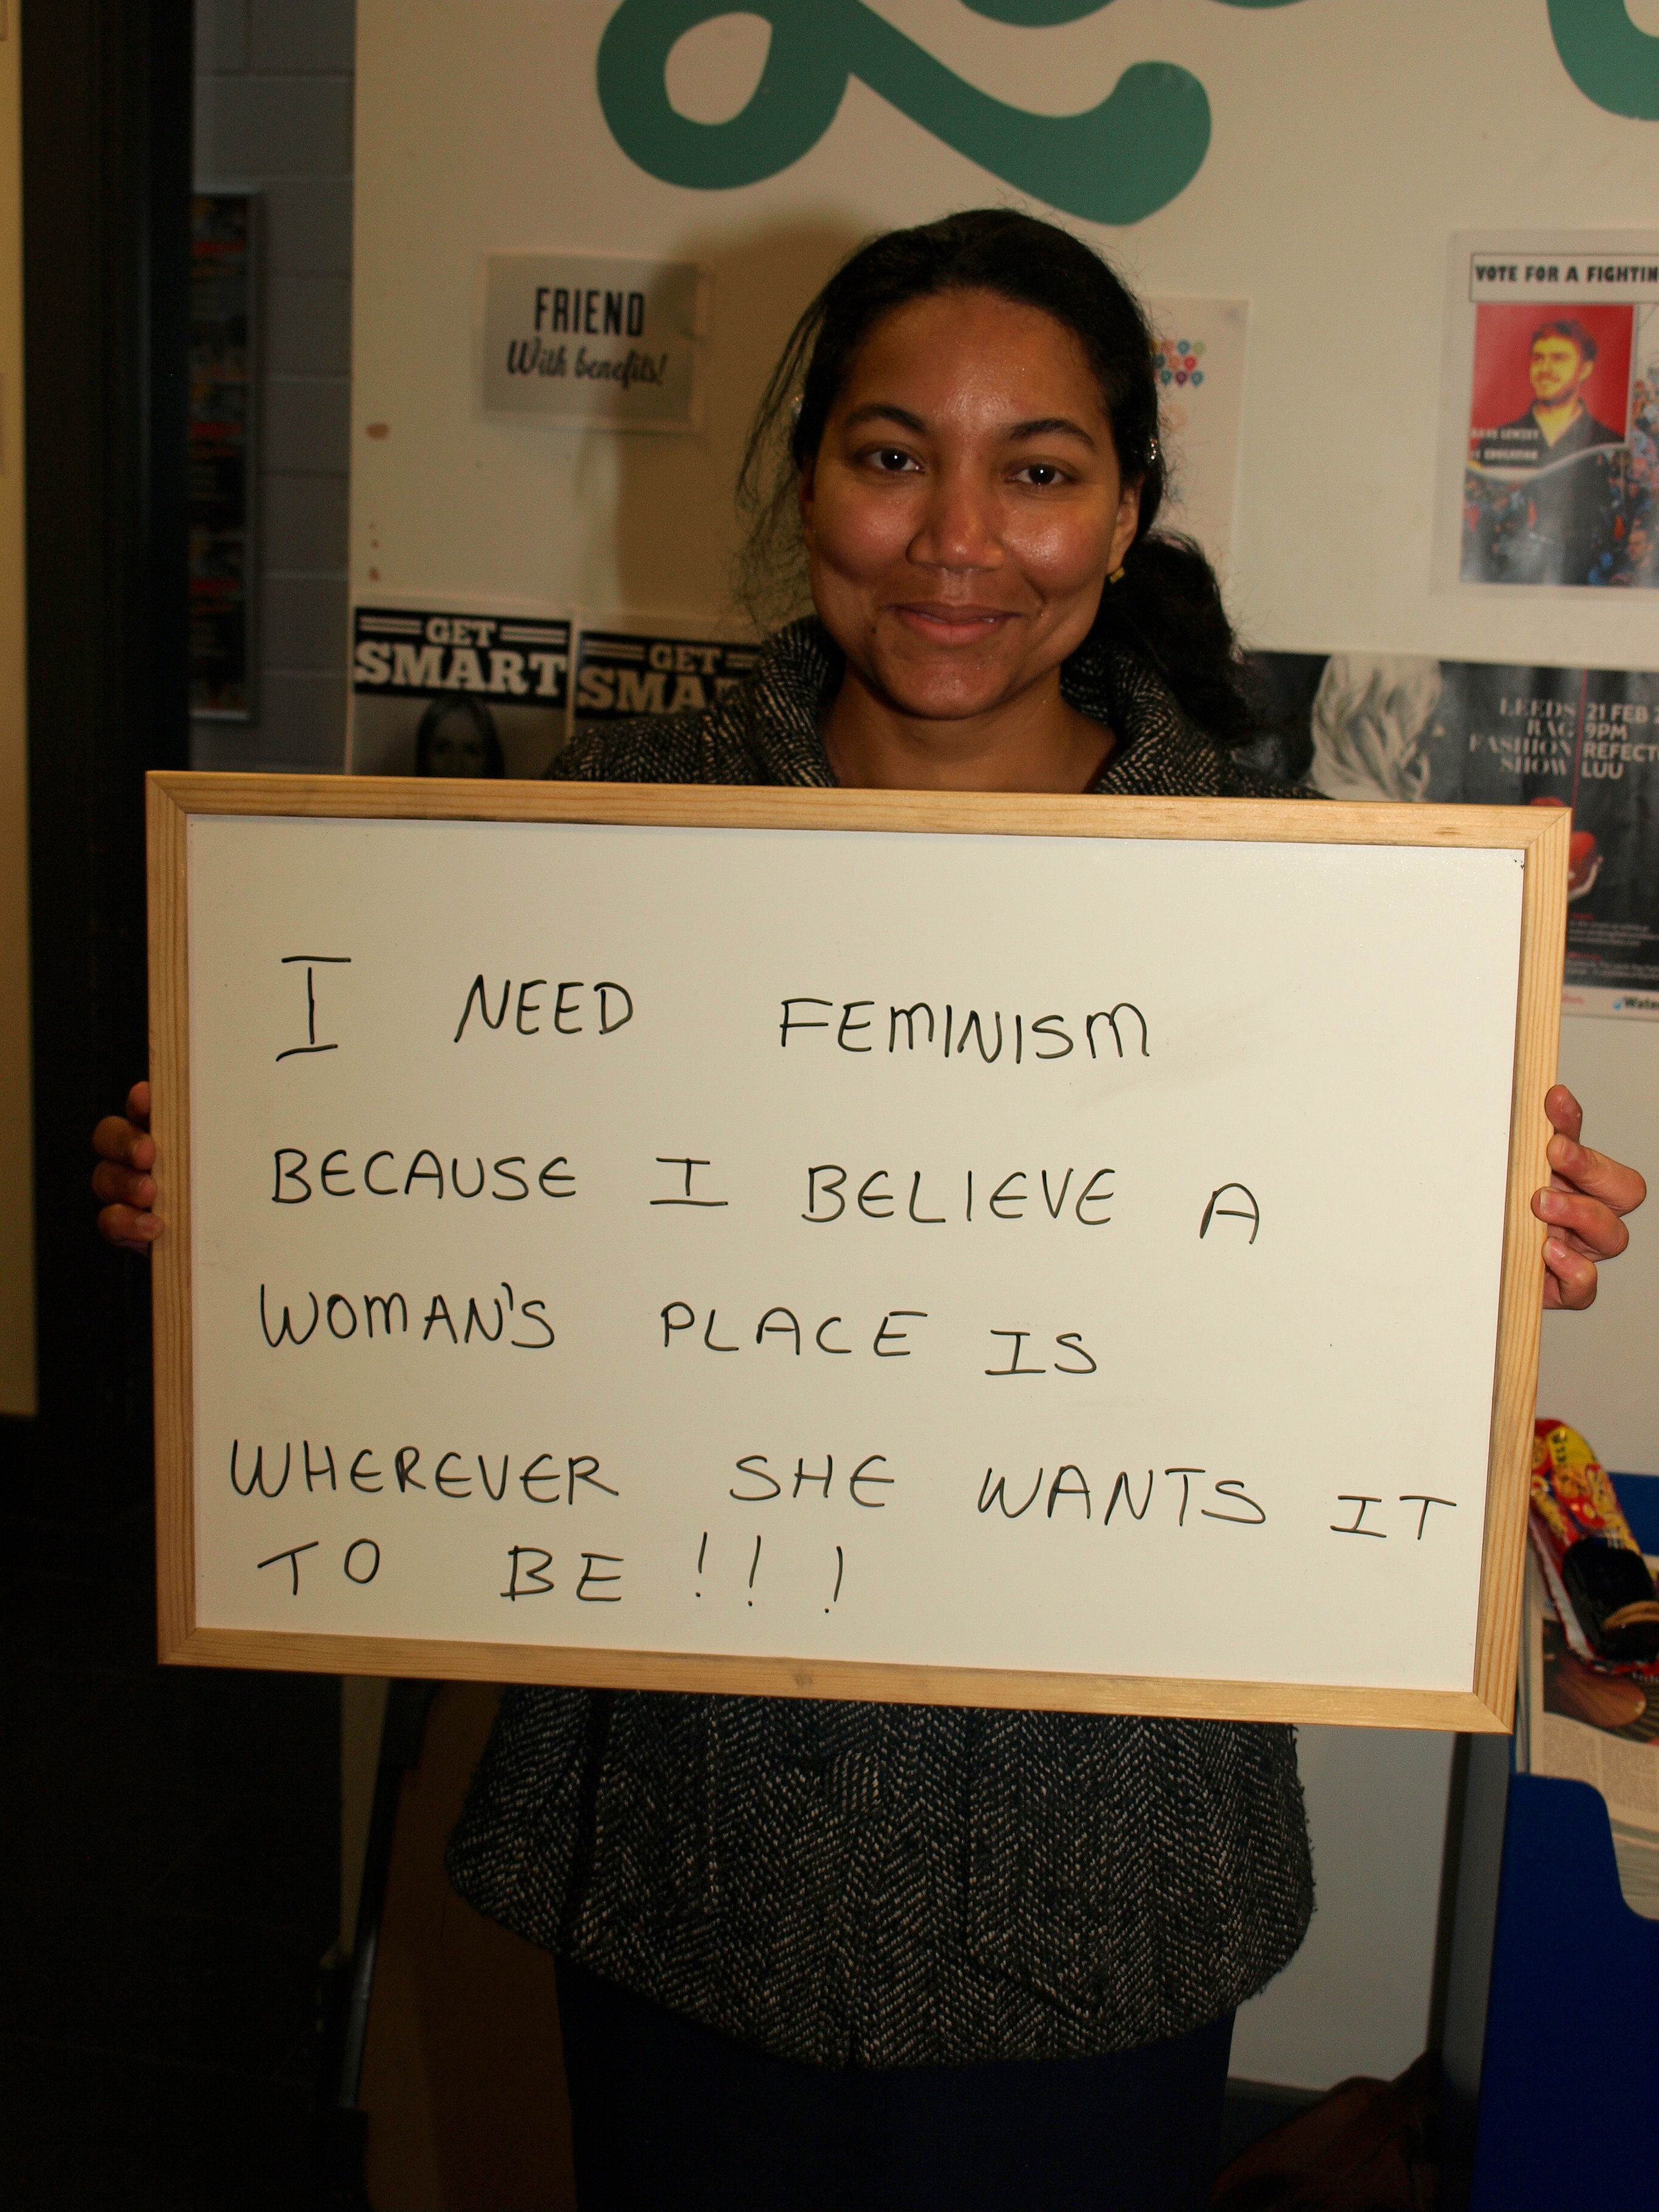 FRIEND
With benefits!
VOTE FOR A FIGHTIN
GET
SMART
GET
SMA
LEEDS
RAG
FASHION
SHOW
21 FEB 2
9PM
REFECT
LUU
I NEED FEMINISM
BECAUSE I BELIEVE A
WOMAN'S PLACE IS
WHEREVER SHE WANTS IT
TO BE!!!